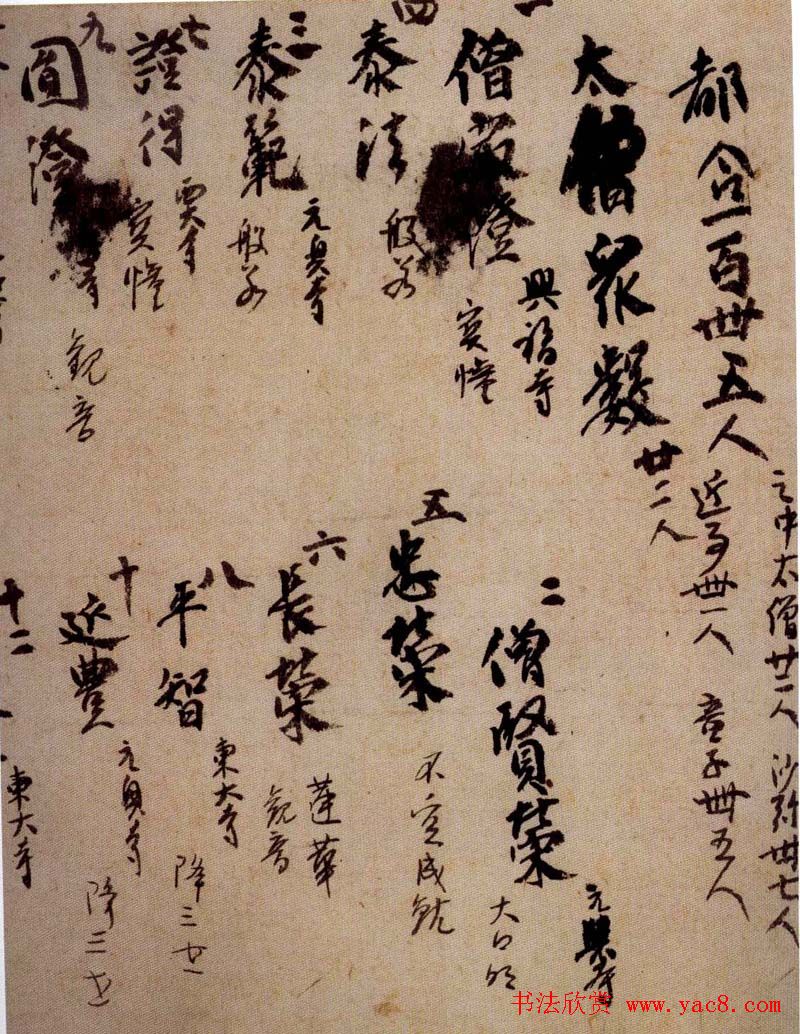 都合一百卌五人
之中太僧廿二人 沙弥卅七人
近事卌一人 童子卌五人
太僧衆數 廿二人
一 僧 澄 興福寺 宝幢
二 僧賢榮 元興寺 大日
四 泰法 般若
五 忠榮 不空成就
三 泰範 元興寺 般若
六 長榮 蓮華 觀音
七 證得 宝幢
八 平智 東大寺 降三世
九 圓澄 寺 觀音
十 延豊 元興寺 降三世
十二
東大寺
书法欣赏 www.yac8.com